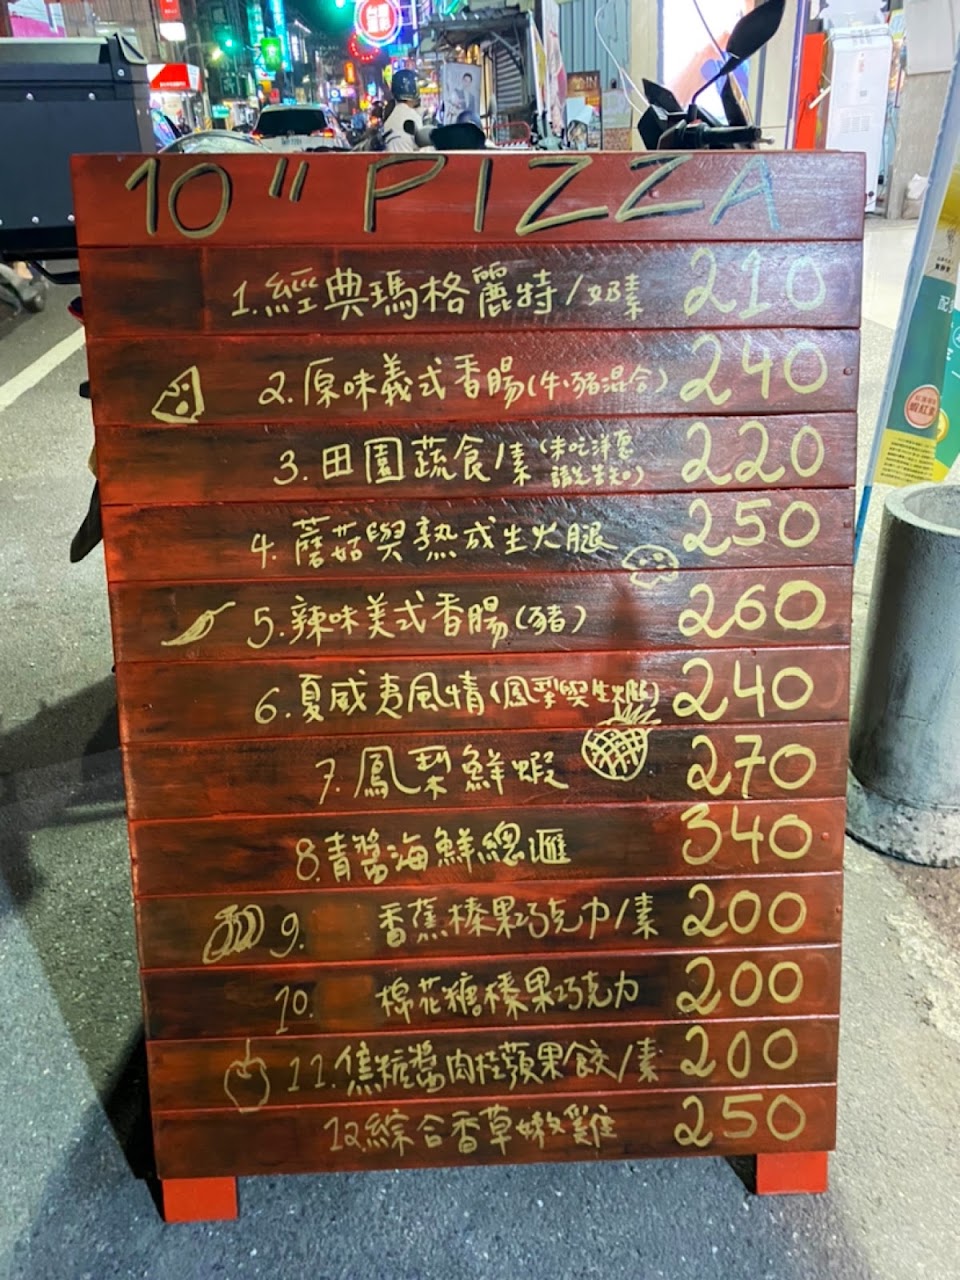 10" PIZZA
1.經典瑪格麗特/奶素 210
2.原味義式香腸(牛豬混合) 240
3.田園蔬食/素(未吃洋蔥請先告知) 220
4.蘑菇與熟成生火腿 250
5.辣味美式香腸(豬) 260
6.夏威夷風情(鳳梨與生火腿) 240
7.鳳梨鮮蝦 270
8.青醬海鮮總匯 340
9. 香蕉榛果巧克力/素 200
10. 棉花糖榛果巧克力 200
11.焦糖醬肉桂蘋果餃/素 200
12.綜合香草嫩雞 250